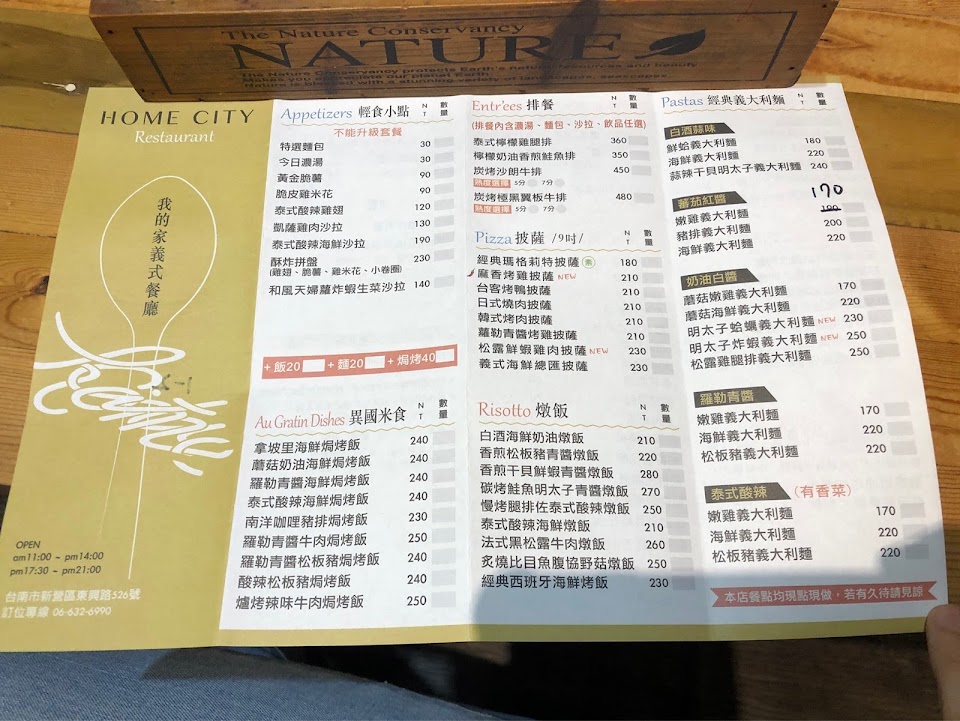 The Nature Conservancy
NATURE
The Nature Conservancy protects Earth's natural resources and beauty
HOME CITY
Restaurant
我的家義式餐廳
OPEN
am11:00 ~ pm14:00
pm17:30 ~ pm21:00
台南市新營區東興路526號
訂位專線 06-632-6990
Appetizers 輕食小點 NT 數量
不能升級套餐
特選麵包 30
今日濃湯 30
黃金脆薯 90
脆皮雞米花 90
泰式酸辣雞翅 120
凱薩雞肉沙拉 130
泰式酸辣海鮮沙拉 190
酥炸拼盤 230
(雞翅、脆薯、雞米花、小卷圈)
和風天婦蘿炸蝦生菜沙拉 140
+ 飯20 + 麵20 + 焗烤40
Au Gratin Dishes 異國米食 NT 數量
拿坡里海鮮焗烤飯 240
蘑菇奶油海鮮焗烤飯 240
羅勒青醬海鮮焗烤飯 240
泰式酸辣海鮮焗烤飯 240
南洋咖哩豬排焗烤飯 230
羅勒青醬牛肉焗烤飯 250
羅勒青醬松板豬焗烤飯 240
酸辣松板豬焗烤飯 240
爐烤辣味牛肉焗烤飯 250
Entr'ees 排餐 NT 數量
(排餐內含濃湯、麵包、沙拉、飲品任選)
泰式檸檬雞腿排 360
檸檬奶油香煎鮭魚排 350
炭烤沙朗牛排 450
熟度選擇 5分 7分
炭烤極黑翼板牛排 480
熟度選擇 5分 7分
Pizza 披薩 /9吋/ NT 數量
經典瑪格莉特披薩 素 180
麻香烤雞披薩 NEW 210
台客烤鴨披薩 210
日式燒肉披薩 210
韓式烤肉披薩 210
蘿勒青醬烤雞披薩 210
松露鮮蝦雞肉披薩 NEW 230
義式海鮮總匯披薩 230
Risotto 燉飯 NT 數量
白酒海鮮奶油燉飯 210
香煎松板豬青醬燉飯 220
香煎干貝鮮蝦青醬燉飯 280
碳烤鮭魚明太子青醬燉飯 270
慢烤腿排佐泰式酸辣燉飯 250
泰式酸辣海鮮燉飯 210
法式黑松露牛肉燉飯 260
炙燒比目魚腹協野菇燉飯 250
經典西班牙海鮮烤飯 230
Pastas 經典義大利麵 NT 數量
白酒蒜味
鮮蛤義大利麵 180
海鮮義大利麵 220
蒜辣干貝明太子義大利麵 240
蕃茄紅醬 170
嫩雞義大利麵 190
豬排義大利麵 200
海鮮義大利麵 220
奶油白醬
蘑菇嫩雞義大利麵 170
蘑菇海鮮義大利麵 220
明太子蛤蠣義大利麵 NEW 230
明太子炸蝦義大利麵 NEW 250
松露雞腿排義大利麵 250
羅勒青醬
嫩雞義大利麵 170
海鮮義大利麵 220
松板豬義大利麵 220
泰式酸辣 (有香菜)
嫩雞義大利麵 170
海鮮義大利麵 220
松板豬義大利麵 220
本店餐點均現點現做，若有久待請見諒